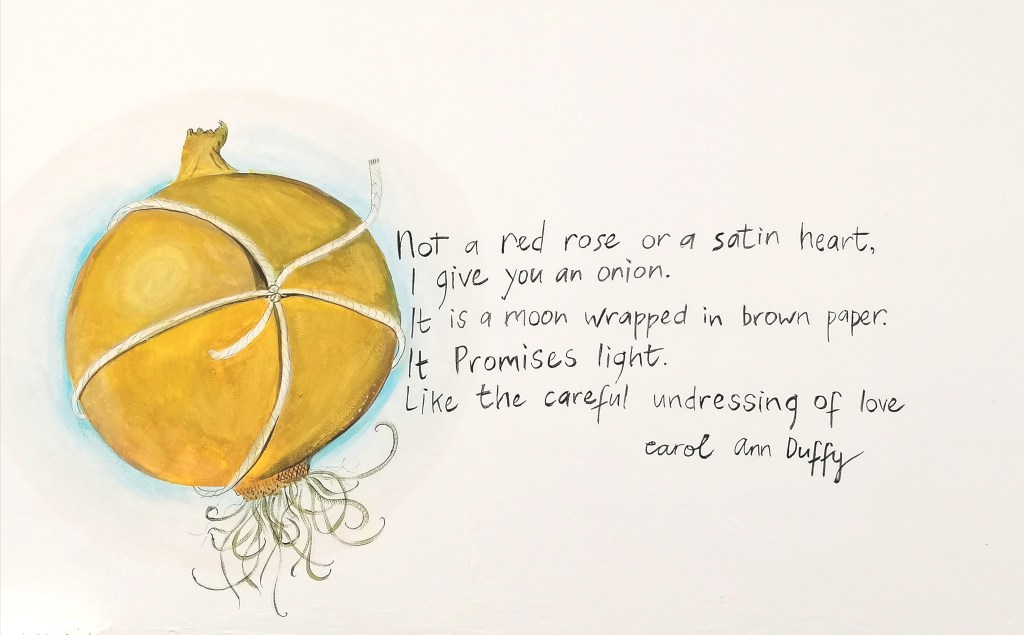 Not a red rose or a satin heart,
I give you an onion.
It is a moon wrapped in brown paper.
It Promises light.
Like the careful undressing of love
carol ann Duffy